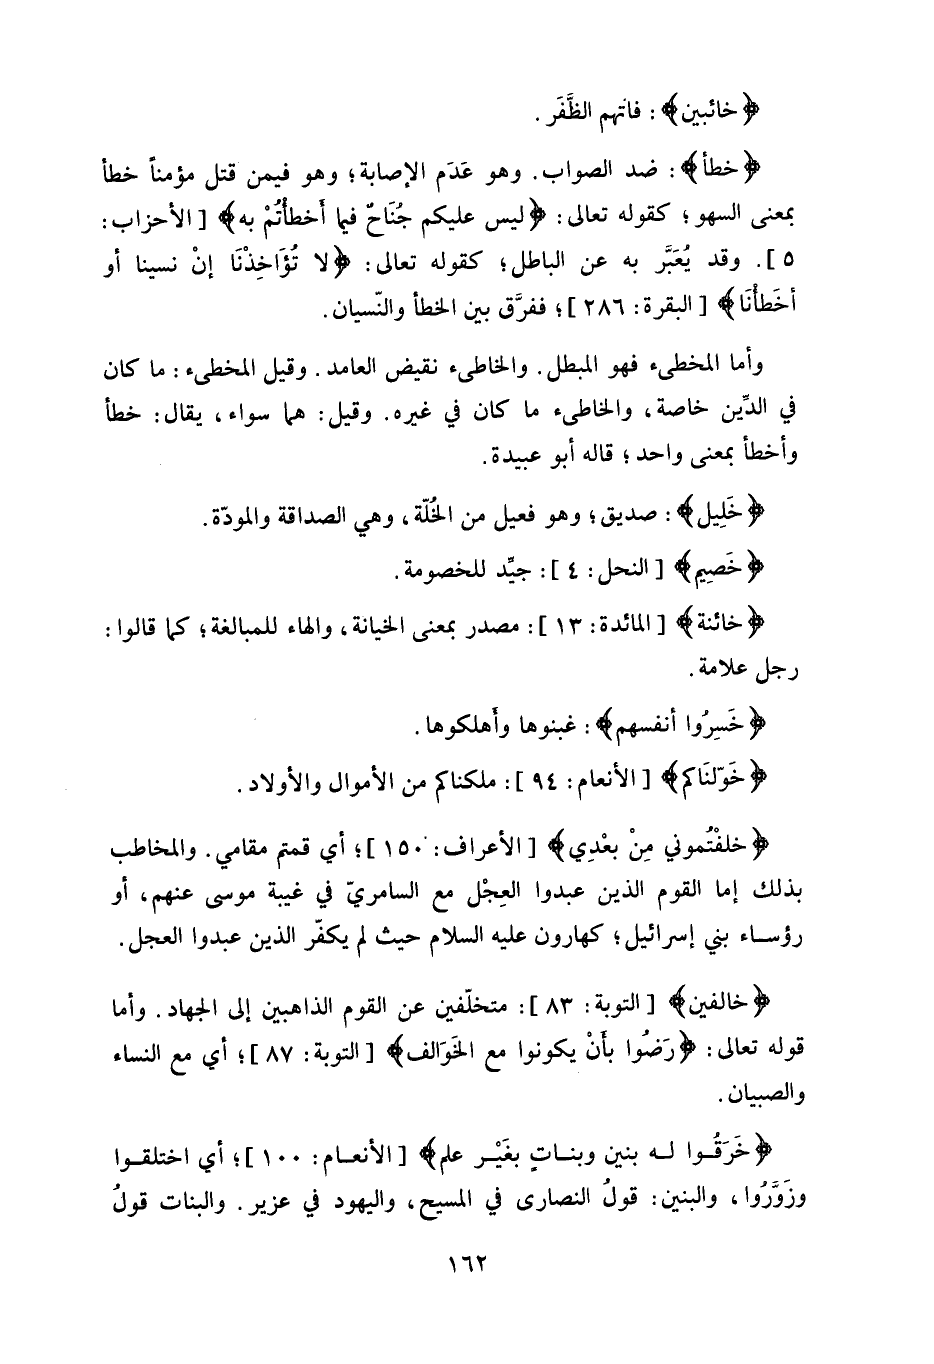 ﴿خائبين﴾: فاتهم الظَّفَر.
﴿خطأ﴾: ضد الصواب. وهو عَدَم الإصابة؛ وهو فيمن قتل مؤمناً خطأ
بمعنى السهو؛ كقوله تعالى: ﴿ليس عليكم جُنَاحٌ فيما أخطأتُمْ به﴾ [الأحزاب:
٥]. وقد يُعَبَّر به عن الباطل؛ كقوله تعالى: ﴿لا تُؤَاخِذْنَا إنْ نسينا أو
أخَطأْنَا﴾ [البقرة: ٢٨٦]؛ ففرَّق بين الخطأ والنّسيان.
وأما المخطىء فهو المبطل. والخاطىء نقيض العامد. وقيل المخطىء: ما كان
في الدِّين خاصة، والخاطىء ما كان في غيره. وقيل: هما سواء، يقال: خطأ
وأخطأ بمعنى واحد؛ قاله أبو عبيدة.
﴿خَلِيل﴾: صديق؛ وهو فعيل من الخُلّة، وهي الصداقة والمودّة.
﴿خَصِيم﴾ [النحل: ٤]: جيِّد للخصومة.
﴿خائنة﴾ [المائدة: ١٣]: مصدر بمعنى الخيانة، والهاء للمبالغة؛ كما قالوا:
رجل علامة.
﴿خَسِرُوا أنفسهم﴾: غبنوها وأَهلكوها.
﴿خَوّلنَاكم﴾ [الأنعام: ٩٤]: ملكناكم من الأموال والأولاد.
﴿خلفْتُموني مِنْ بعْدِي﴾ [الأعراف: ١٥٠]؛ أي قمتم مقامي. والمخاطب
بذلك إما القوم الذين عبدوا العِجْل مع السامريّ في غيبة موسى عنهم، أو
رؤساء بني إسرائيل؛ كهارون عليه السلام حيث لم يكفّر الذين عبدوا العجل.
﴿خالفين﴾ [التوبة: ٨٣]: متخلّفين عن القوم الذاهبين إلى الجهاد. وأما
قوله تعالى: ﴿رَضُوا بأَنْ يكونوا مع الخَوَالف﴾ [التوبة: ٨٧]؛ أي مع النساء
والصبيان.
﴿خَرَقُوا له بنين وبناتٍ بغَيْر علم﴾ [الأنعام: ١٠٠]؛ أي اختلقوا
وزَوَّرُوا، والبنين: قولُ النصارى في المسيح، واليهود في عزير. والبنات قولُ
١٦٢